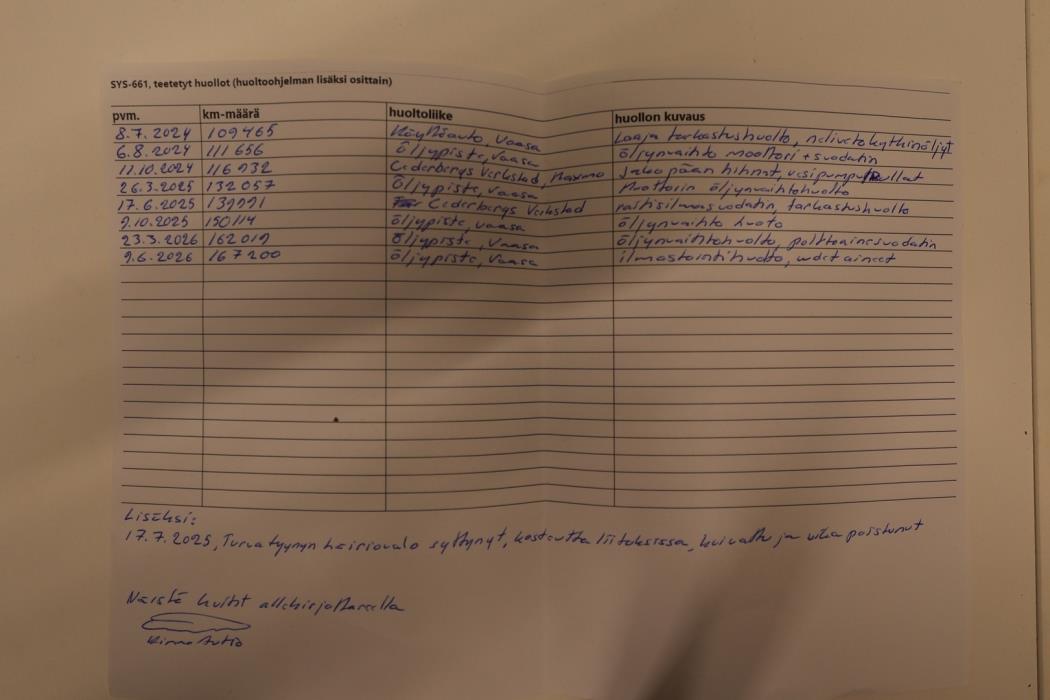 SYS-661, teetetyt huollot (huoltoohjelman lisäksi osittain)
pvm. km-määrä huoltoliike huollon kuvaus
8.7. 2024 109465 Käyttöauto, Vaasa Laaja tarkastushuolto, nelivetokytkinöljyt
6.8. 2024 111 656 Öljypiste, Vaasa öljynvaihto moottori + suodatin
11.10. 2024 116 932 Cederbergs Verkstad, Maxmo Jakopään hihnat, vesipumpu, Rullat
26.3. 2025 132 057 Öljypiste, Vaasa Moottorin öljynvaihtohuolto
17.6. 2025 139991 Cederbergs Verkstad raitisilmasuodatin, tarkastushuolto
9.10.2025 150114 öljypiste, Vaasa öljynvaihto huoto
23.3. 2026 162 019 öljypiste, Vaasa öljynvaihtohuolto, polttoainesuodatin
9.6. 2026 167 200 öljypiste, Vaasa ilmastointihuolto, uudet aineet
Lisäksi:
17.7.2025, Turvatyynyn häiriövalo syttynyt, kosteutta liitoksissa, kuivattu ja vika poistunut
Näistä kuitit allekirjottaneella
Autio